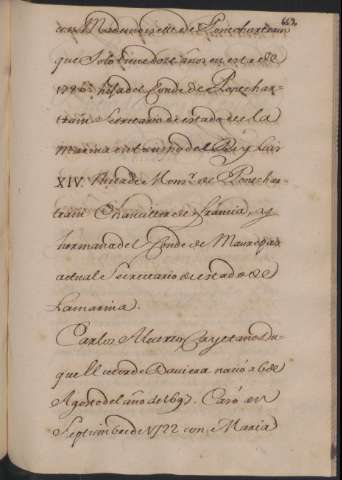 652
con Madamoiselle de Pontchartrain
que solo tiene doze años en este de
1728. hija del Conde de Pontchar-
train Secretario de estado de la
marina en tiempo del Rey Luis
XIV. Nieta de Monsr. de Pontchar-
train Chanciller de Francia, y
hermana del Conde de Maurepas
actual Secretario de estado de
la marina.
Carlos Alverto Cayetano Du-
que Elector de Baviera nació a 6 de
Agosto del año de 1697. Casó en
Septiembre de 1722 con Maria